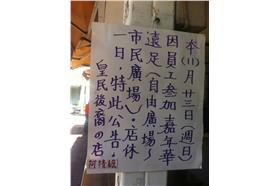 本(11)月廿三日(週日)
因員工參加嘉年華
遠足(自由廣場~
市民廣場),店休
一日,特此公告。
皇民後裔の店
阿陸師